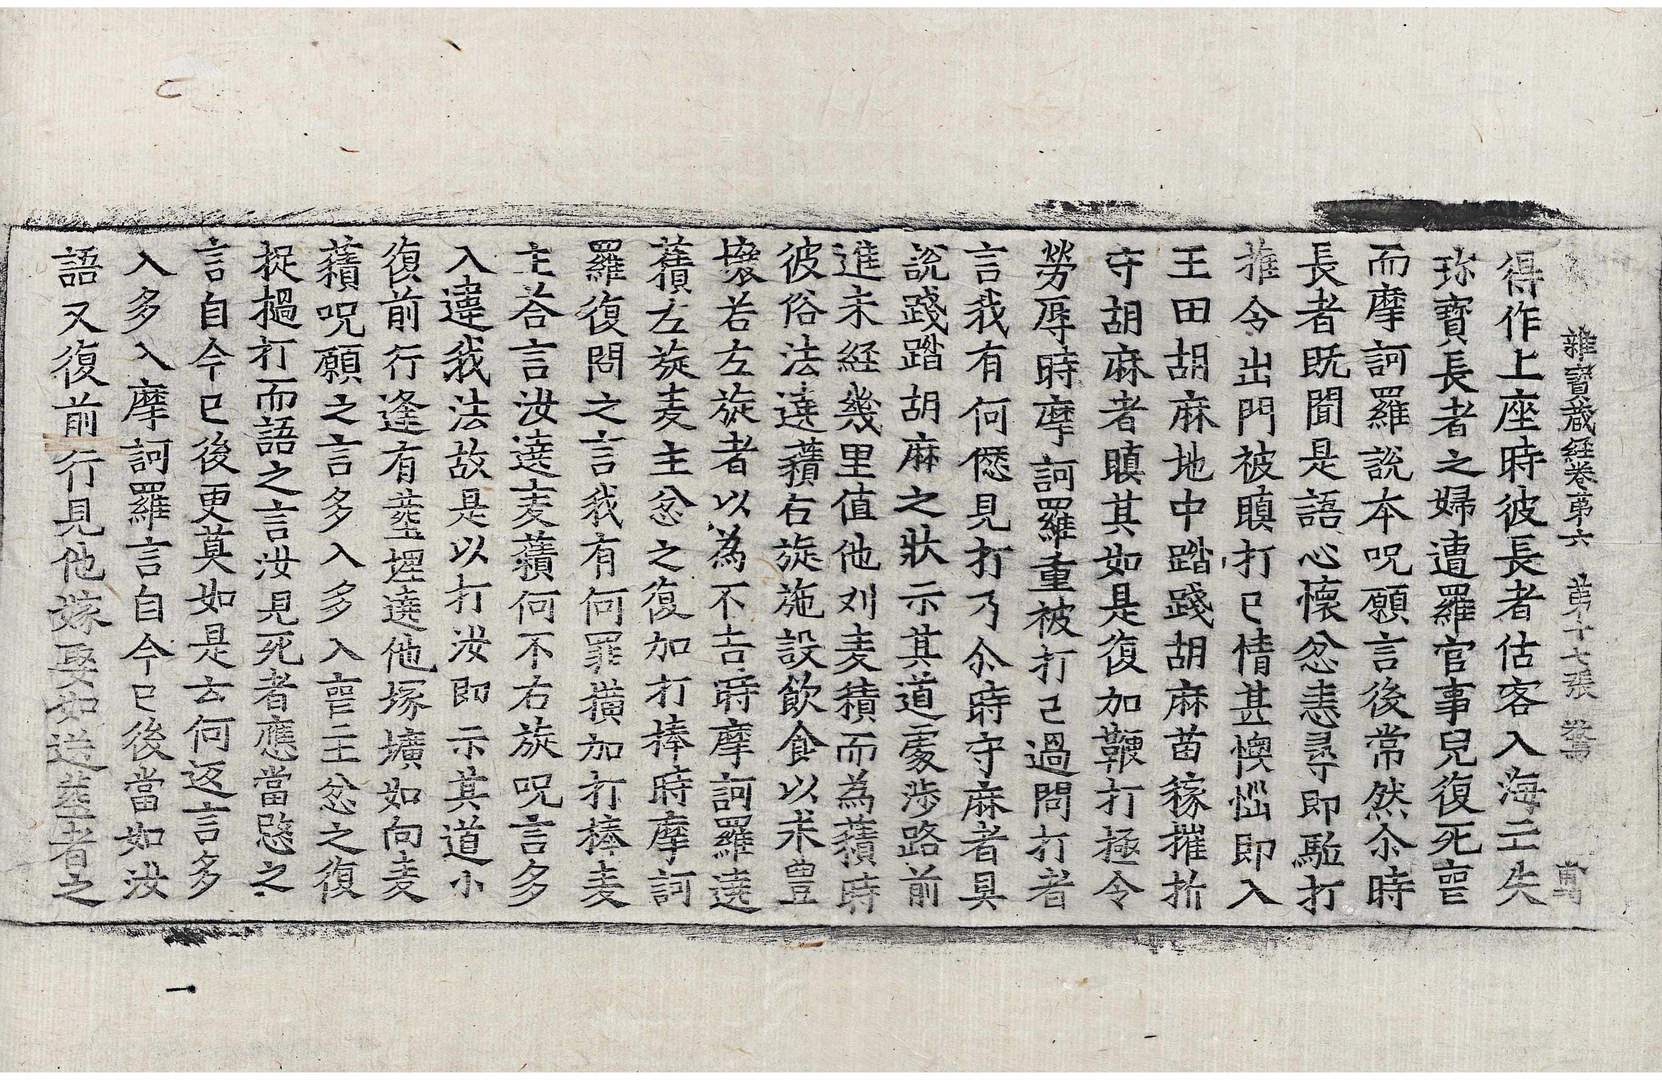 雜寶藏經卷第六 第十七張 驚
得作上座時彼長者估客入海亡失
珎寶長者之婦遭羅官事兒復死䘮
而摩訶羅說本呪願言後常然尒時
長者旣聞是語心懷忿恚尋即驅打
推令出門被瞋打已情甚懊惱即入
王田胡麻地中踏踐胡麻苗稼摧折
守胡麻者瞋其如是復加鞭打極令
勞辱時摩訶羅重被打已過問打者
言我有何愆見打乃尒時守麻者具
說踐踏胡麻之狀示其道處涉路前
進未經幾里值他刈麦積而為𧂐時
彼俗法遶𧂐右旋施設飮食以求豊
壤若左旋者以為不吉時摩訶羅遶
𧂐左旋麦主忿之復加打棒時摩訶
羅復問之言我有何罪橫加打棒麦
主荅言汝遶麦𧂐何不右旋呪言多
入違我法故是以打汝即示其道小
復前行逢有塟埋遶他塚壙如向麦
𧂐呪願之言多入多入䘮主忿之復
捉撾打而語之言汝見死者應當愍之
言自今已後更莫如是云何返言多
入多入摩訶羅言自今已後當如汝
語又復前行見他嫁娶如送塟者之